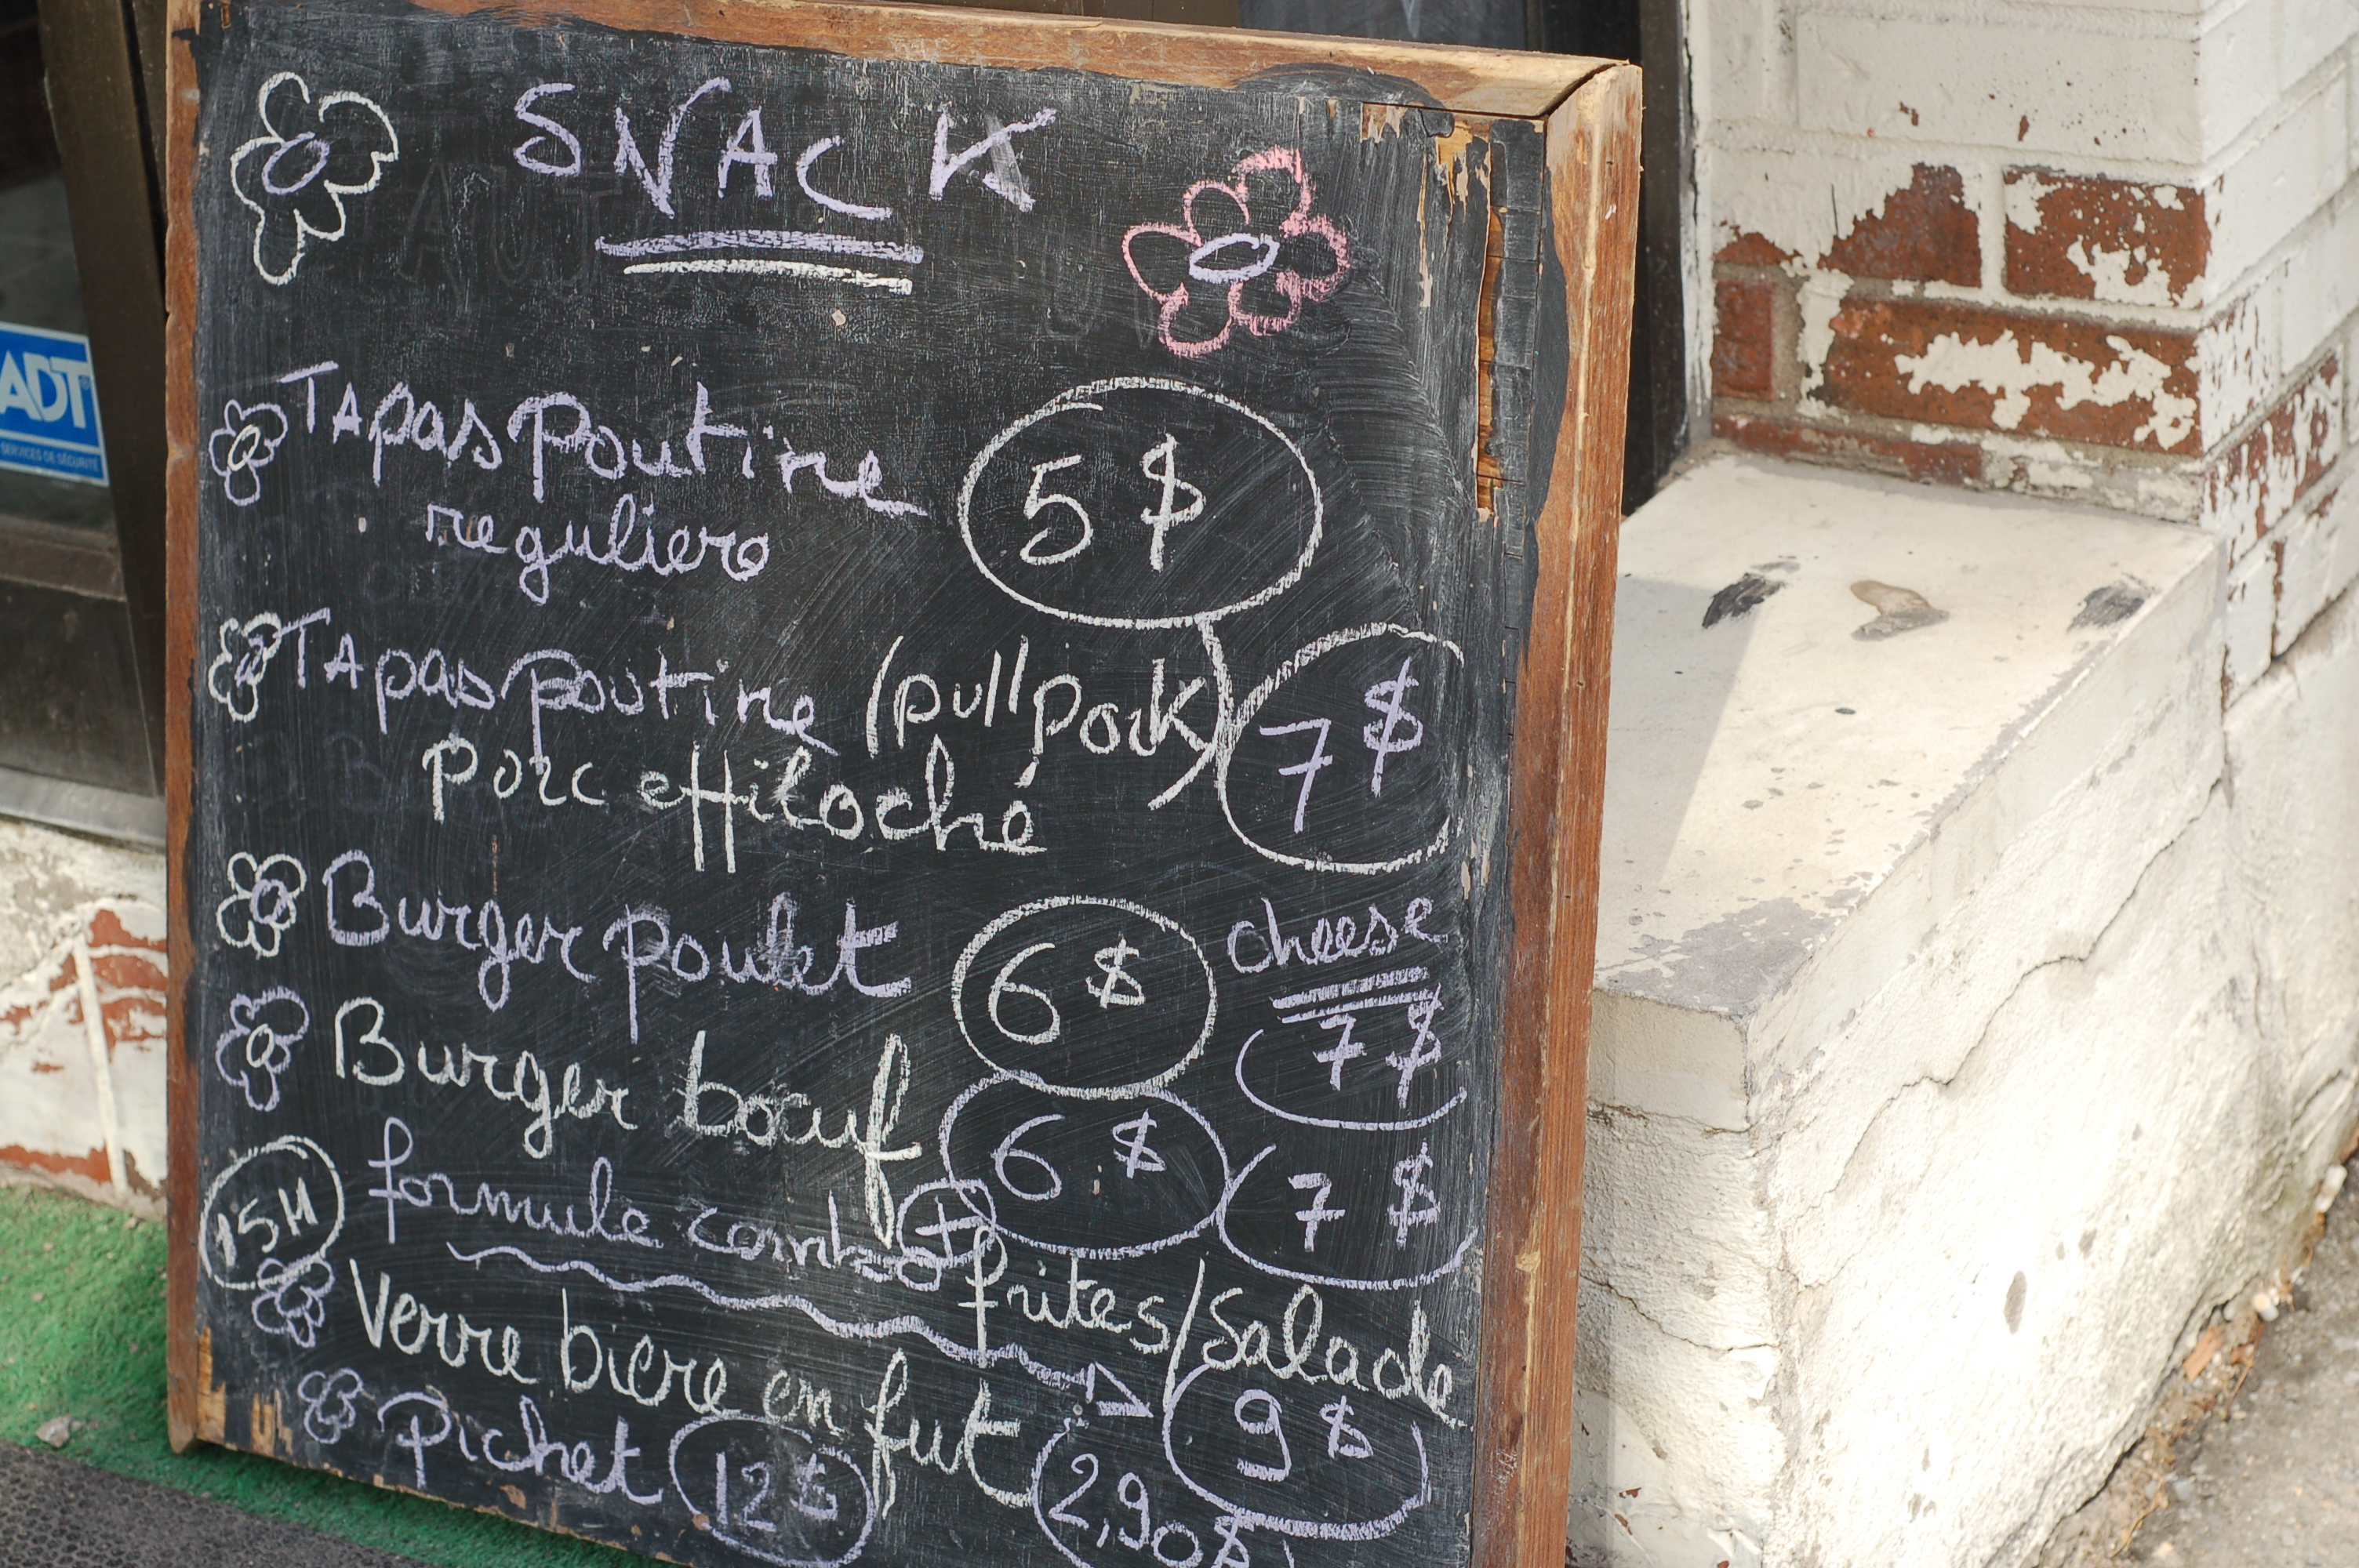 SNACK
Tapas Poutine 5$
reguliero
Tapas poutine (pull pork) 7$
porc effiloché
Burger poulet 6$ cheese 7$
Burger boeuf 6$ 7$
15H formule combo + frites/Salade 9$
Verre bière en fut 2,90$
Pichet 12$
ADT
SERVICES DE SÉCURITÉ